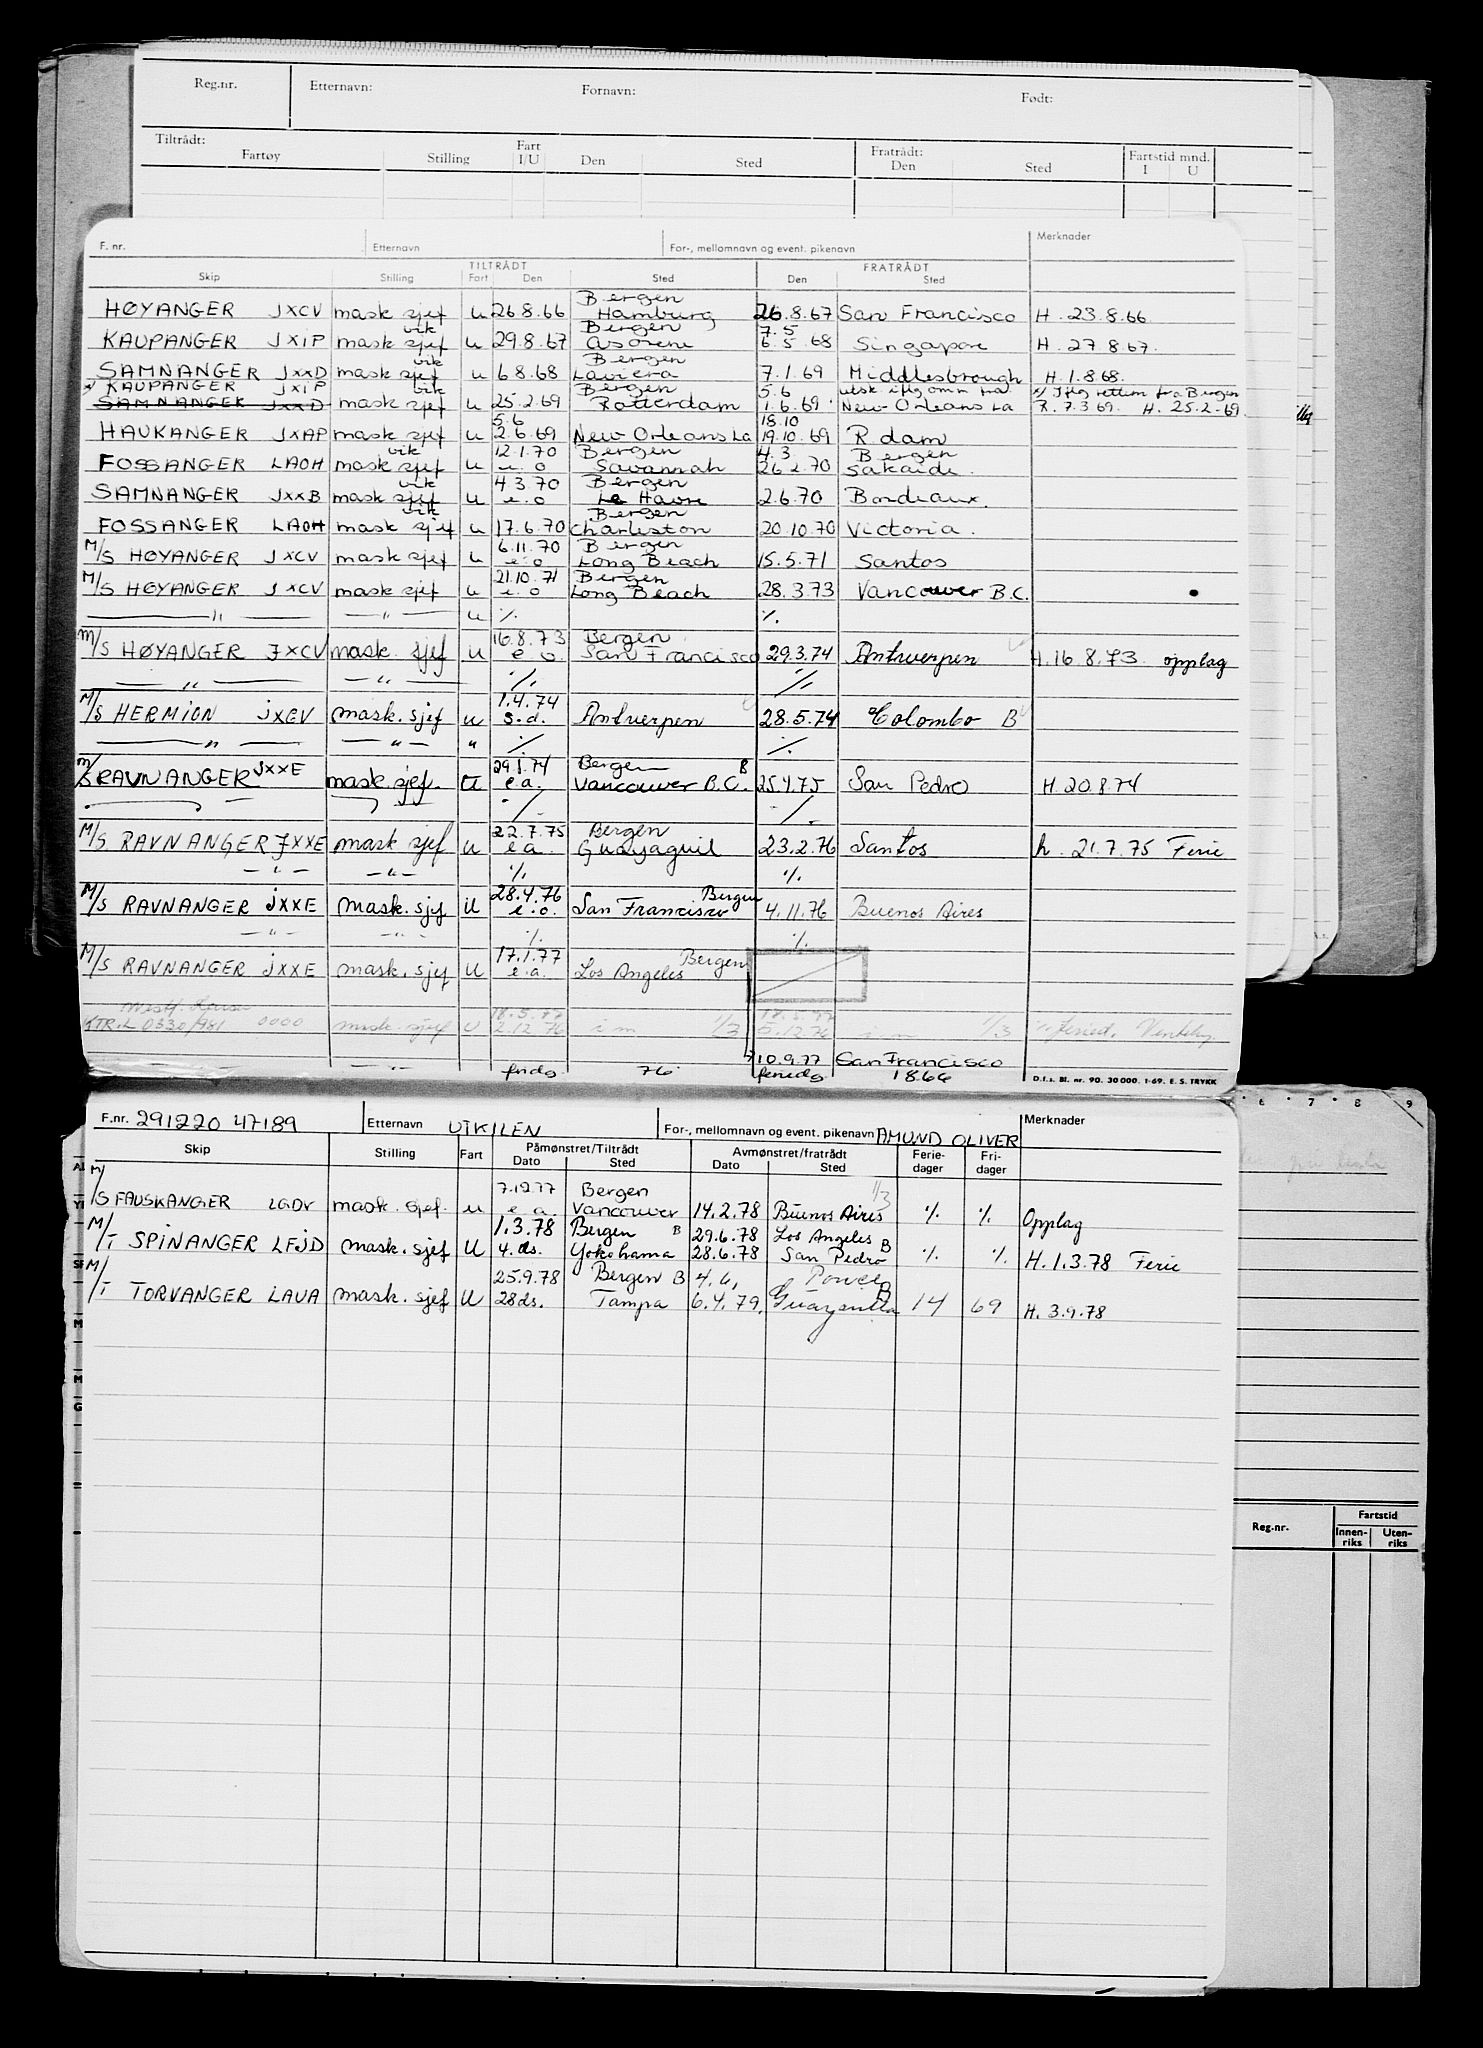 Reg.nr. Etternavn: Fornavn: Født:
Tiltrådt: Fart Fratrådt: Fartstid mnd.
Fartøy Stilling I/U Den Sted Den Sted I U
F. nr. Etternavn For-, mellomnavn og event. pikenavn Merknader
TILTRÅDT FRATRÅDT
Skip Stilling Fart Den Sted Den Sted
Bergen
HØYANGER JXCV mask sjef u 26.8.66 Hamburg 26.8.67 San Francisco H. 23.8.66
vik Bergen 7.5
KAUPANGER JXIP mask sjef u 29.8.67 6.5 68 Singapore H. 27.8.67.
vik Bergen
SAMNANGER JXXD mask sjef u 6.8.68 Laviera 7.1.69 Middlesbrough H. 1.8.68.
KAUPANGER JXIP vik Bergen 5.6
SAMNANGER JXXD mask sjef u 25.2.69 Rotterdam 1.6.69 New Orleans La R. 7.3.69. H. 25.2.69.
5.6 18.10
HAUKANGER JXAP mask sjef u 2.6.69 New Orleans La 19.10.69 R.dam
vik 12.1.70 Bergen 4.3. Bergen
FOSSANGER LAOH mask sjef u e.o Savannah 26.2.70 Sakaide.
vik 4.3.70 Bergen
SAMNANGER JXXB mask sjef u e.o Le Havre 2.6.70 Bordeaux.
vik Bergen
FOSSANGER LAOH mask sjef u 17.6.70 Charleston 20.10.70 Victoria.
6.11.70 Bergen
M/S HØYANGER JXCV mask sjef u e.o Long Beach 15.5.71 Santos
21.10.71 Bergen
M/S HØYANGER JXCV mask sjef u e.o Long Beach 28.3.73 Vancouver B.C.
— " — — " — u ·/. ·/.
16.8.73 Bergen
M/S HØYANGER JXCV mask. sjef u e.o. San Francisco 29.3.74 Antwerpen H. 16.8.73 opplag
— " — — " — ·/. ·/.
1.4.74
M/S HERMION JXGV mask. sjef u s.d. Antverpen 28.5.74 Colombo B
— " — — " — " ·/. ·/.
Bergen B
M/S RAVNANGER JXXE mask. sjef. U e.a. Vancouver B.C. 25.4.75 San Pedro H. 20.8.74
·/. ·/.
22.7.75 Bergen
M/S RAVNANGER JXXE mask sjef u e a. Guayaquil 23.2.76 Santos h. 21.7.75 Ferie
— " — — " — ·/. ·/.
28.4.76 Bergen
M/S RAVNANGER JXXE mask. sjef U e.o. San Francisco 4.11.76 Buenos Aires
— " — — " — ·/. ·/.
17.1.77 Bergen
M/S RAVNANGER JXXE mask. sjef U e.a. Los Angeles
18.5.77 18.5.77
KTR.L 0330/981 0000 mask. sjef U 2.12.76 i m 1/3 5.12.76 i m 1/3
10.9.77 San Francisco
frido 76 feriedg 1866
D.f.s. Bl. nr. 90. 30 000. 1-69. E. S. TRYKK
F.nr. 291220 47189 Etternavn UTKILEN For-, mellomnavn og event. pikenavn AMUND OLIVER Merknader
Skip Stilling Fart Påmønstret/Tiltrådt Avmønstret/fratrådt Ferie- Fri-
Dato Sted Dato Sted dager dager
7.12.77 Bergen 1/3
M/S FAUSKANGER LGDV mask. sjef. u e a. Vancouver 14.2.78 Buenos Aires ·/. ·/. Opplag
1.3.78 Bergen B 29.6.78 Los Angeles
M/T SPINANGER LFJD mask. sjef U 4. ds. Yokohama 28.6.78 San Pedro B ·/. ·/. H. 1.3.78 Ferie
25.9.78 Bergen B 4.6, Ponce
M/T TORVANGER LAUA mask. sjef U 28 ds. Tampa 6.4.79. Guayanilla B 14 69 H. 3.9.78
6 7 8 9
Reg.nr. Fartstid
Innen-riks Uten-riks